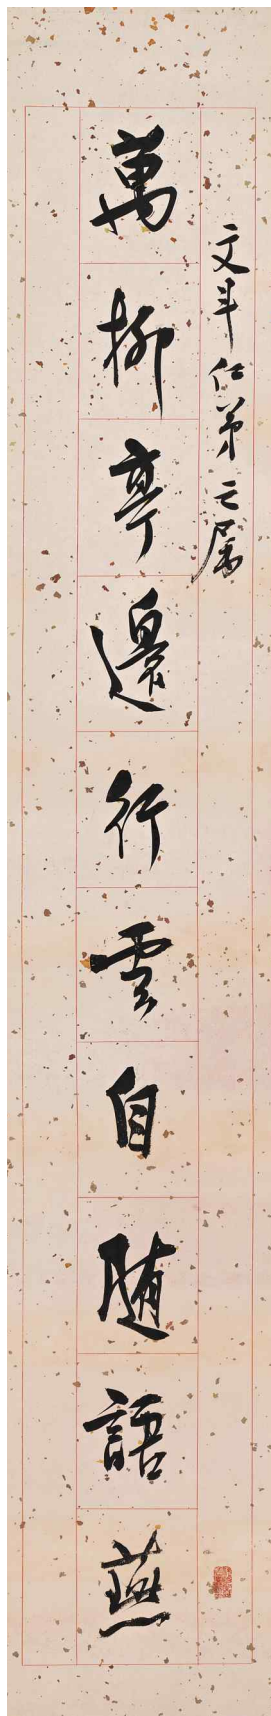 文斗仁弟之屬
萬柳亭邊行雲自隨語燕